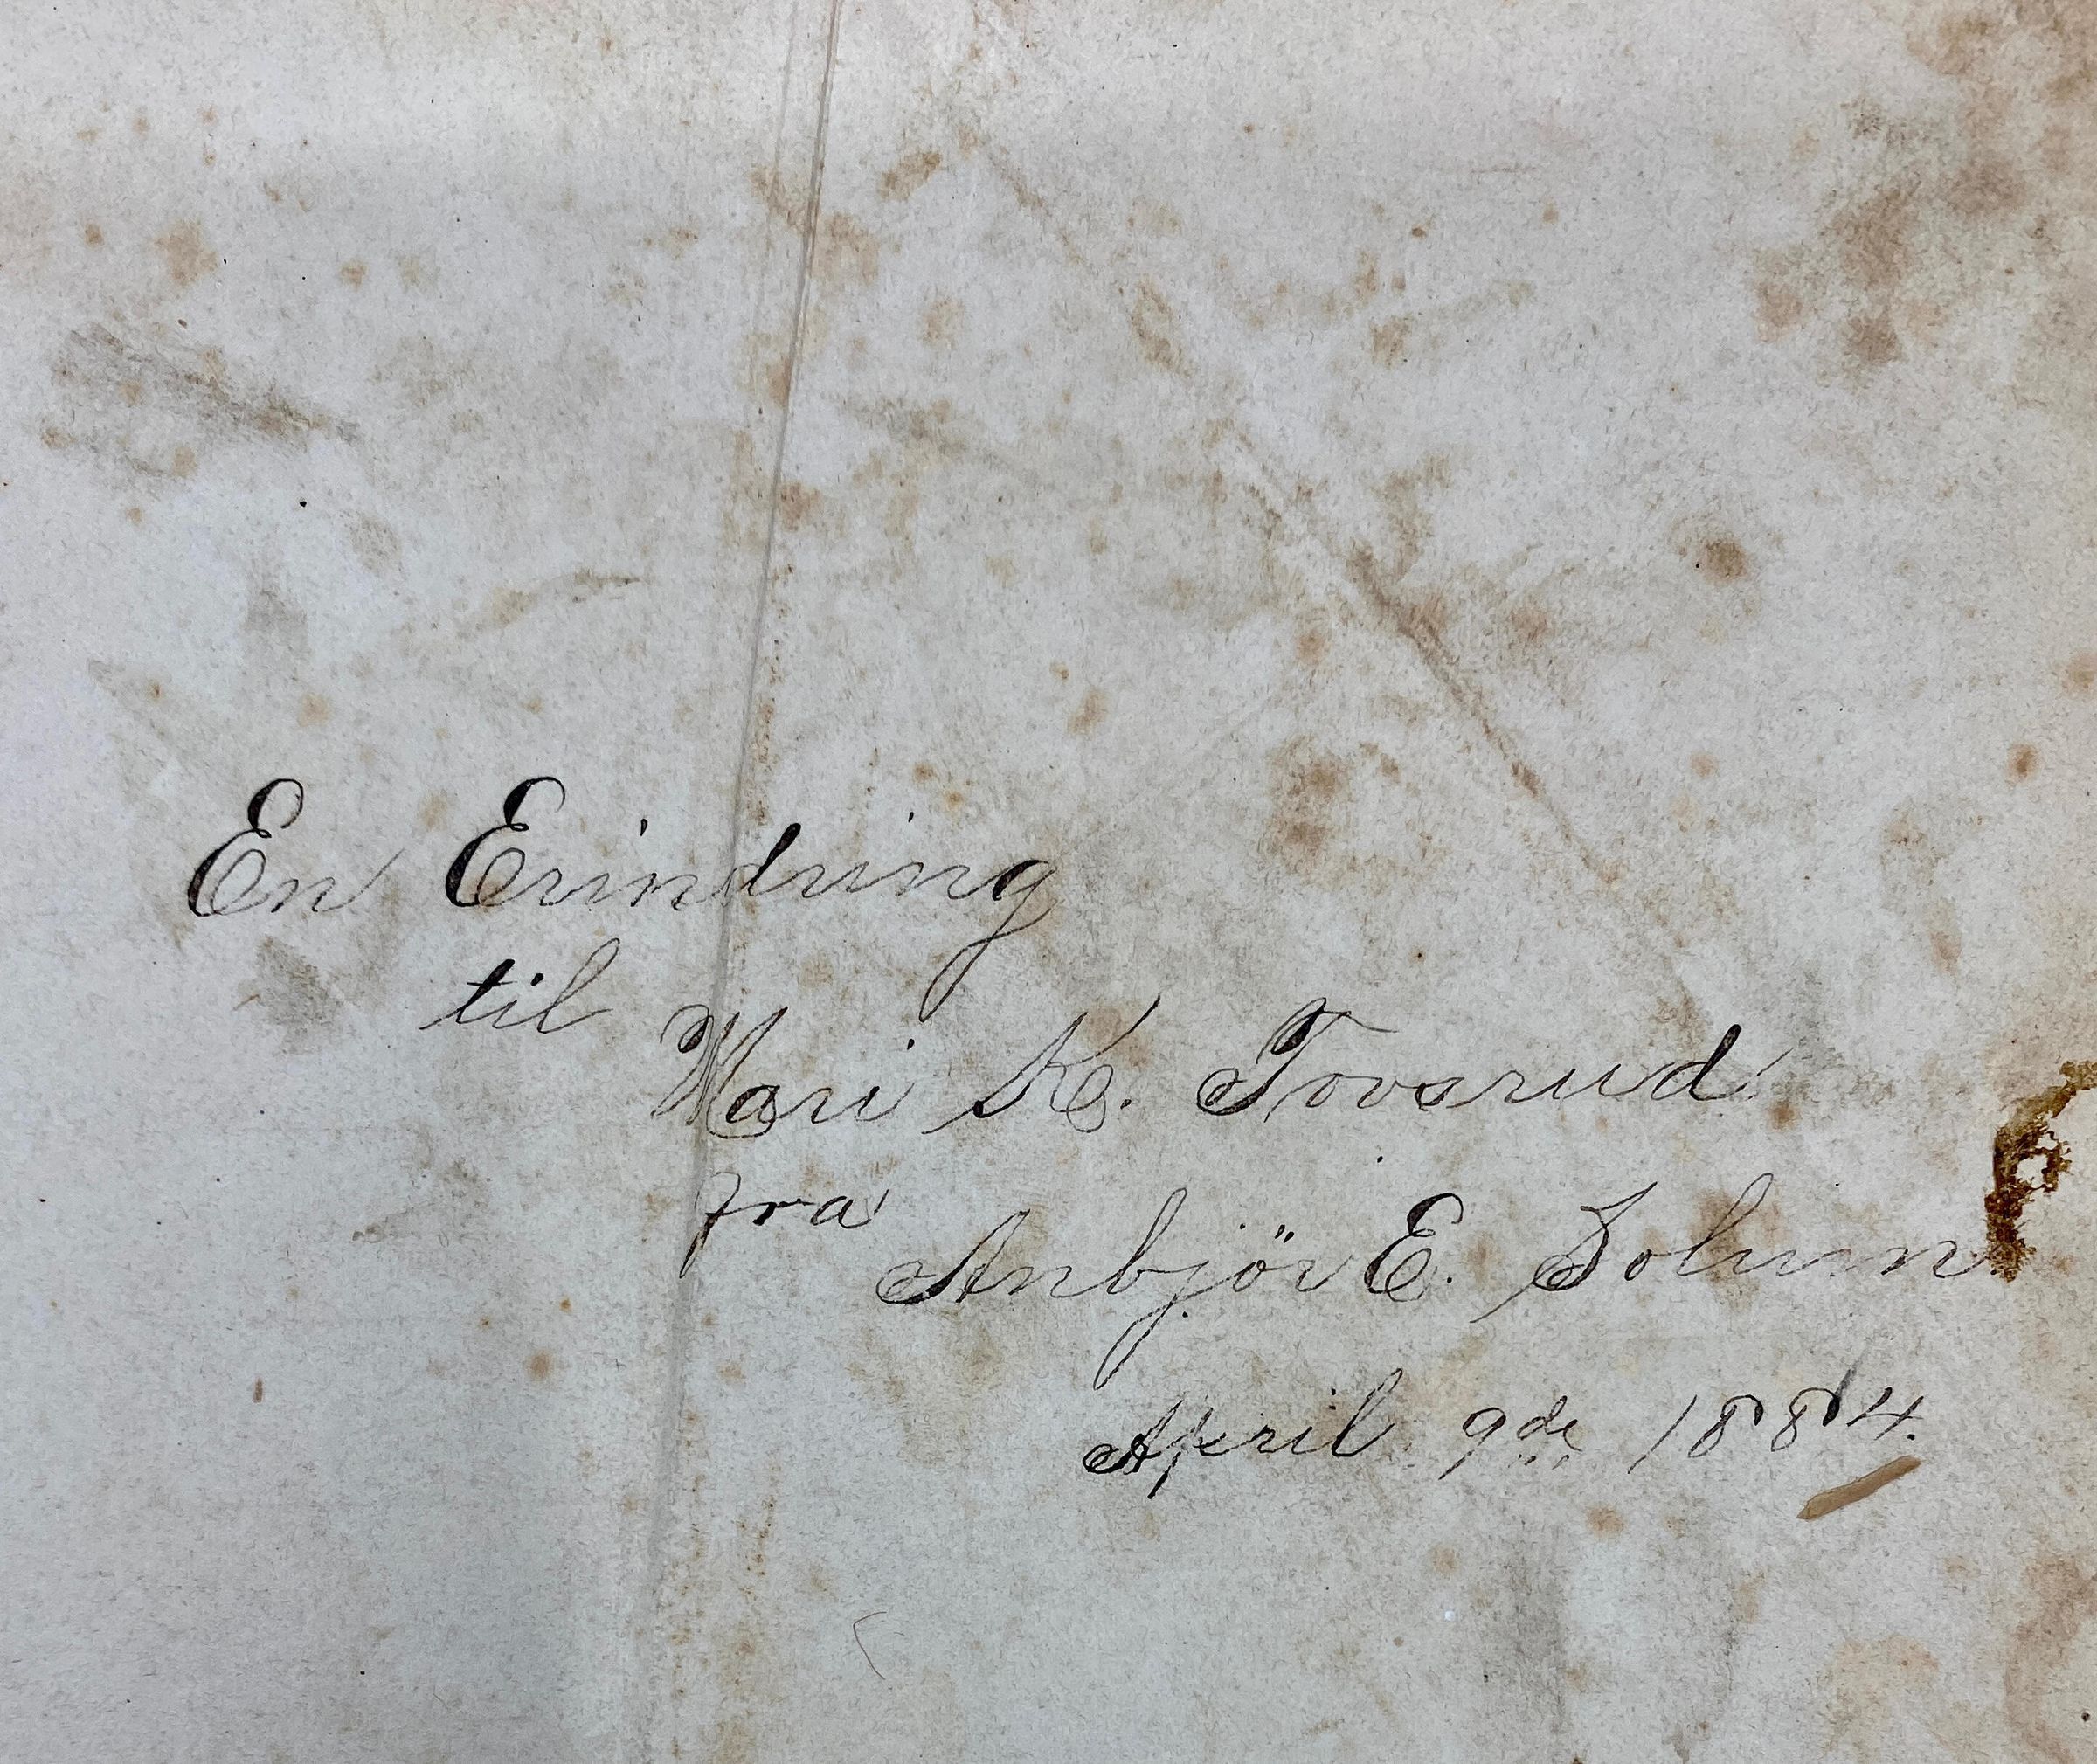 En Erindring
til
Mari K. Tovsrud
fra
Anbjör E. Solum
April 9de 1884.